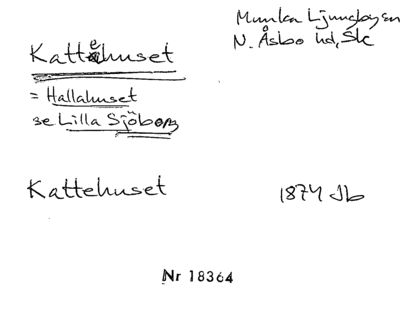 Munka Ljungbysn
N. Åsbo hd, Sk
Kattehuset
= Hallahuset
se Lilla Sjöberg
Kattehuset
1874 Jb
Nr 18364